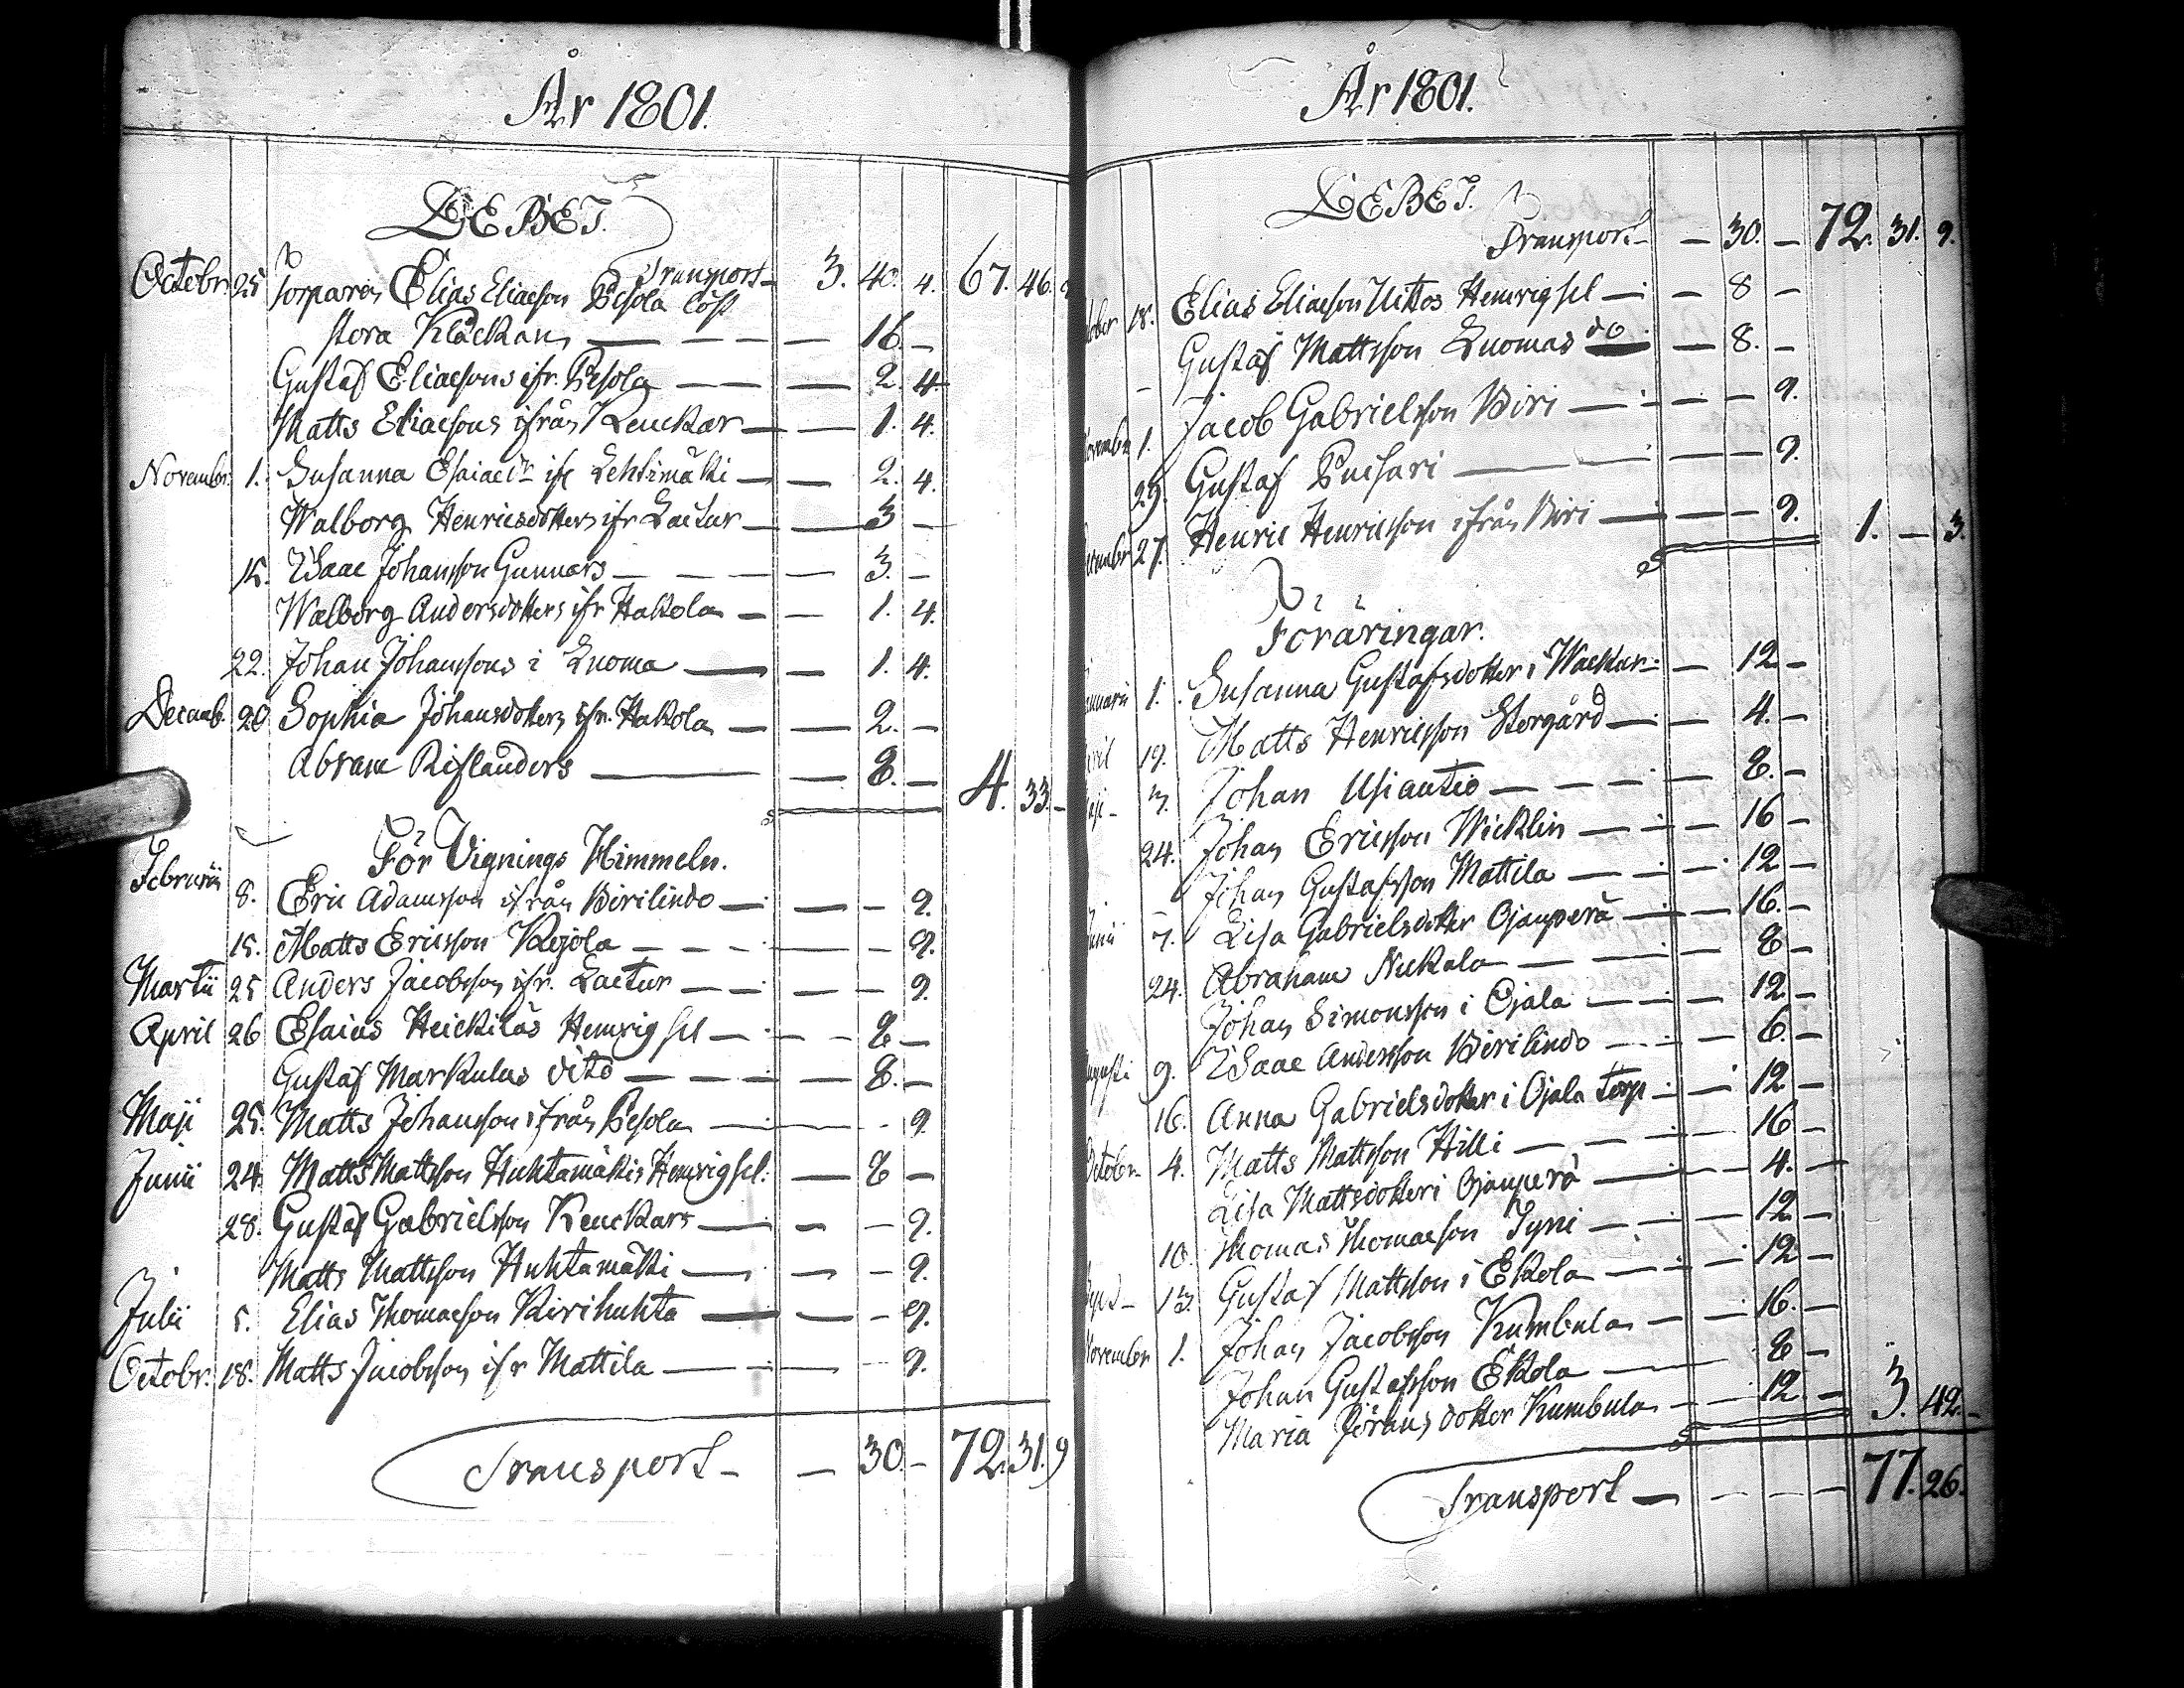 År 1801.
DEBET.
Transport - 3. 40. 4. 67. 46.
Octobr. 25 Torparen Elias Eliaeson Pesola löst
stora Klåckan — — — — 16. —
Gustaf Eliaesons ifr. Pesola — — — 2. 4.
Matts Eliaesons ifrån Keuckar — — 1. 4.
Novembr. 1. Susanna Esaiaedr ifr Lehtimäki — — 2. 4.
Walborg Henricsdotters ifr Lactur — — 3 —
15. Isaac Johansson Gunnars — — — 3. —
Walborg Andersdotters ifr Hakola — — 1. 4.
22. Johan Johanssons i Luoma — — 1. 4.
Decemb. 20 Sophia Johansdotters ifr. Hakola — — 2. —
Abram Rislanders — — 8. — 4. 33. —
För Vignings Himmeln.
Februarii 8. Eric Adamsson ifrån Birilindo — — — 9.
15. Matts Ericsson Kojola — — — — 9.
Martii 25 Anders Jacobsson ifr. Lactur — — — — 9.
April 26 Esaias Heickiläs Hemrigsel — — — 8 —
Gustaf Markulas dito — — — 8. —
Maji 25. Matts Johansson ifrån Pesola — — — 9.
Junii 24. Matts Mattsson Huhtamäkis Hemrigsel. — 8 —
28. Gustaf Gabrielsson Keuckars — — — 9.
Matts Mattsson Huhtamäki — — — 9.
Julii 5. Elias Thomaeson Kirihuhta — — — 9.
Octobr. 18. Matts Jacobsson ifr Mattila — — — 9.
Transport - — 30. — 72. 31. 9
År 1801.
DEBET.
Transport - — 30. — 72. 31. 9.
18. Elias Eliaeson Uittos Hemrigsel — — 8 —
Gustaf Mattsson Luomas do — 8. —
1. Jacob Gabrielsson Biri — — — 9.
29. Gustaf Puisari — — — 9.
27. Henric Henricsson ifrån Biri — — — 9. 1. — 3.
Föräringar.
1. Susanna Gustafsdotter i Wackur — 12 —
19. Matts Henricsson Storgård — — 4. —
3. Johan Usiautio — — — 8. —
24. Johan Ericsson Wicklin — — 16 —
– Johan Gustafsson Mattila — — 12 —
7. Lisa Gabrielsdotter Ojanperä — — 16. —
24. Abraham Nuckala — — 8 —
Johan Simonsson i Ojala — — 12 —
9. Isaac Andersson Birilindo — — 6. —
16. Anna Gabrielsdotter i Ojala torp — 12 —
Octobr. 4. Matts Mattsson Hilli — — 16 —
Lisa Mattsdotter i Ojanperä — — 4. —
10. Thomas Thomaeson Tyni — — 12 —
13. Gustaf Mattsson i Ekola — — 12 —
Novembr 1. Johan Jacobsson Kumbula — — 16. —
Johan Gustafsson Ekola — — 8 —
Maria Jöransdotter Kumbula — — 12 — 3. 42. —
Transport — — — — 77. 26.